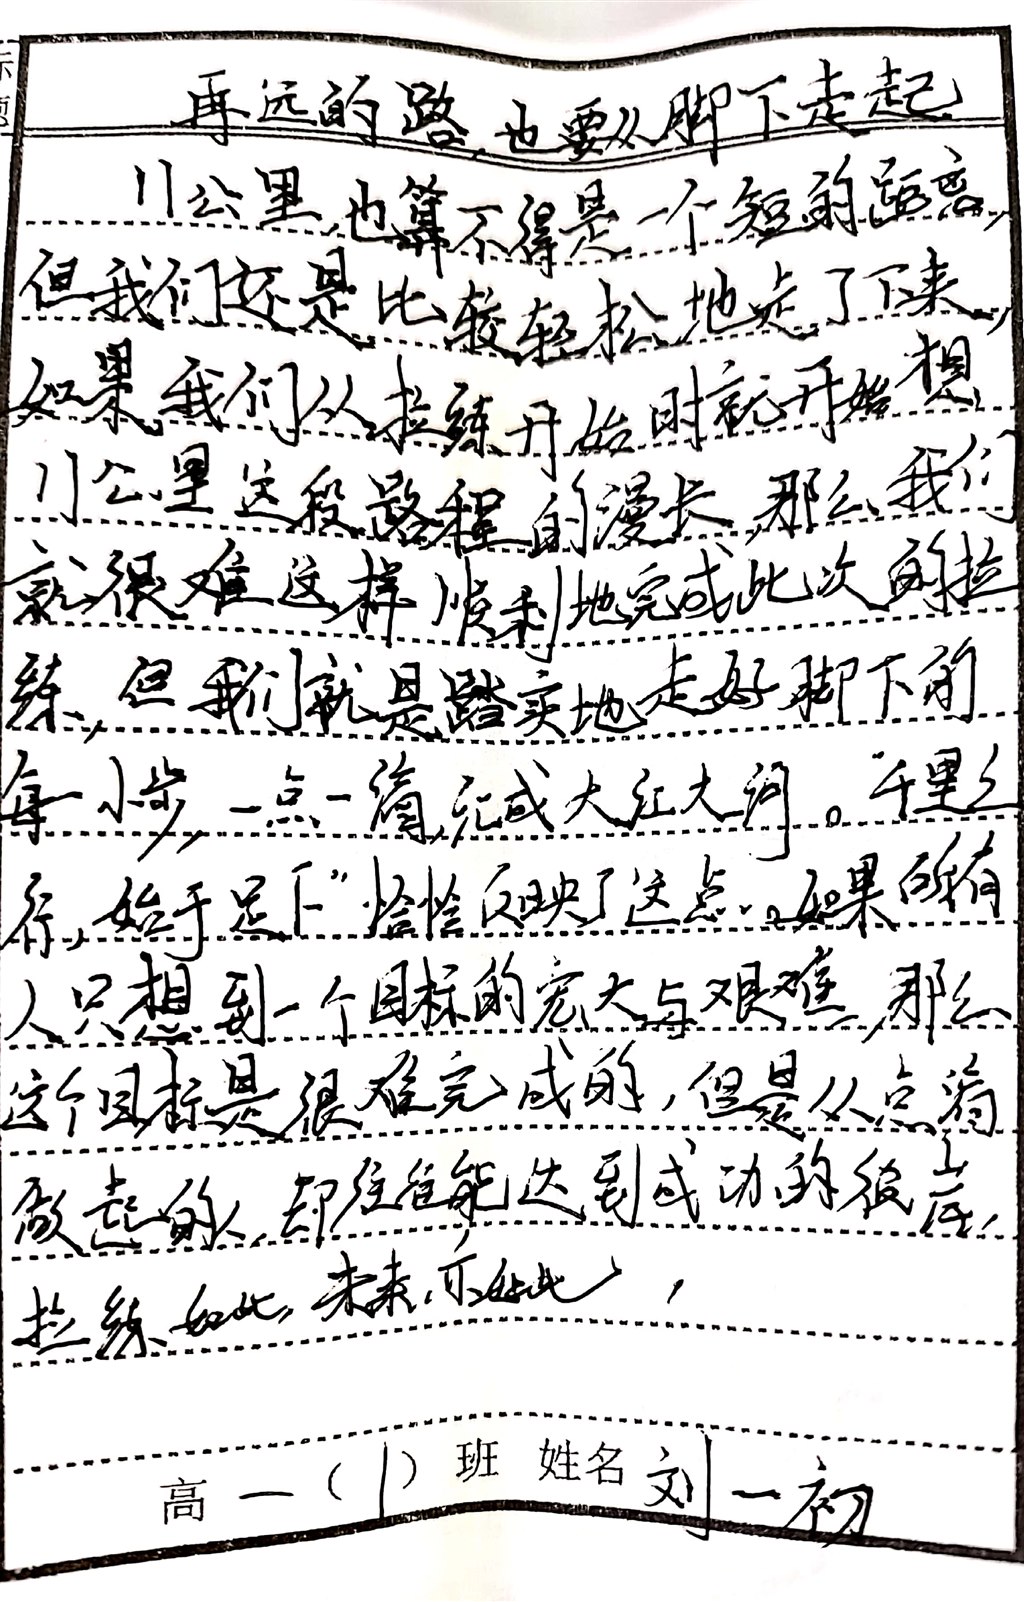 标
题
再远的路,也要从脚下走起
11公里,也算不得是一个短的距离,
但我们还是比较轻松地走了下来,
如果,我们从拉练开始时就开始想,
11公里这段路程的漫长,那么,我们
就很难这样顺利地完成此次的拉
练,但我们就是踏实地走好脚下的
每一小步,一点一滴,汇成大江大河。“千里之
行,始于足下”恰恰反映了这点。如果所有
人只想到一个目标的宏大与艰难,那么
这个目标是很难完成的,但是从点滴
做起的人,却往往能达到成功的彼岸,
拉练如此,未来,亦如此,
高一(1)班 姓名 刘一初